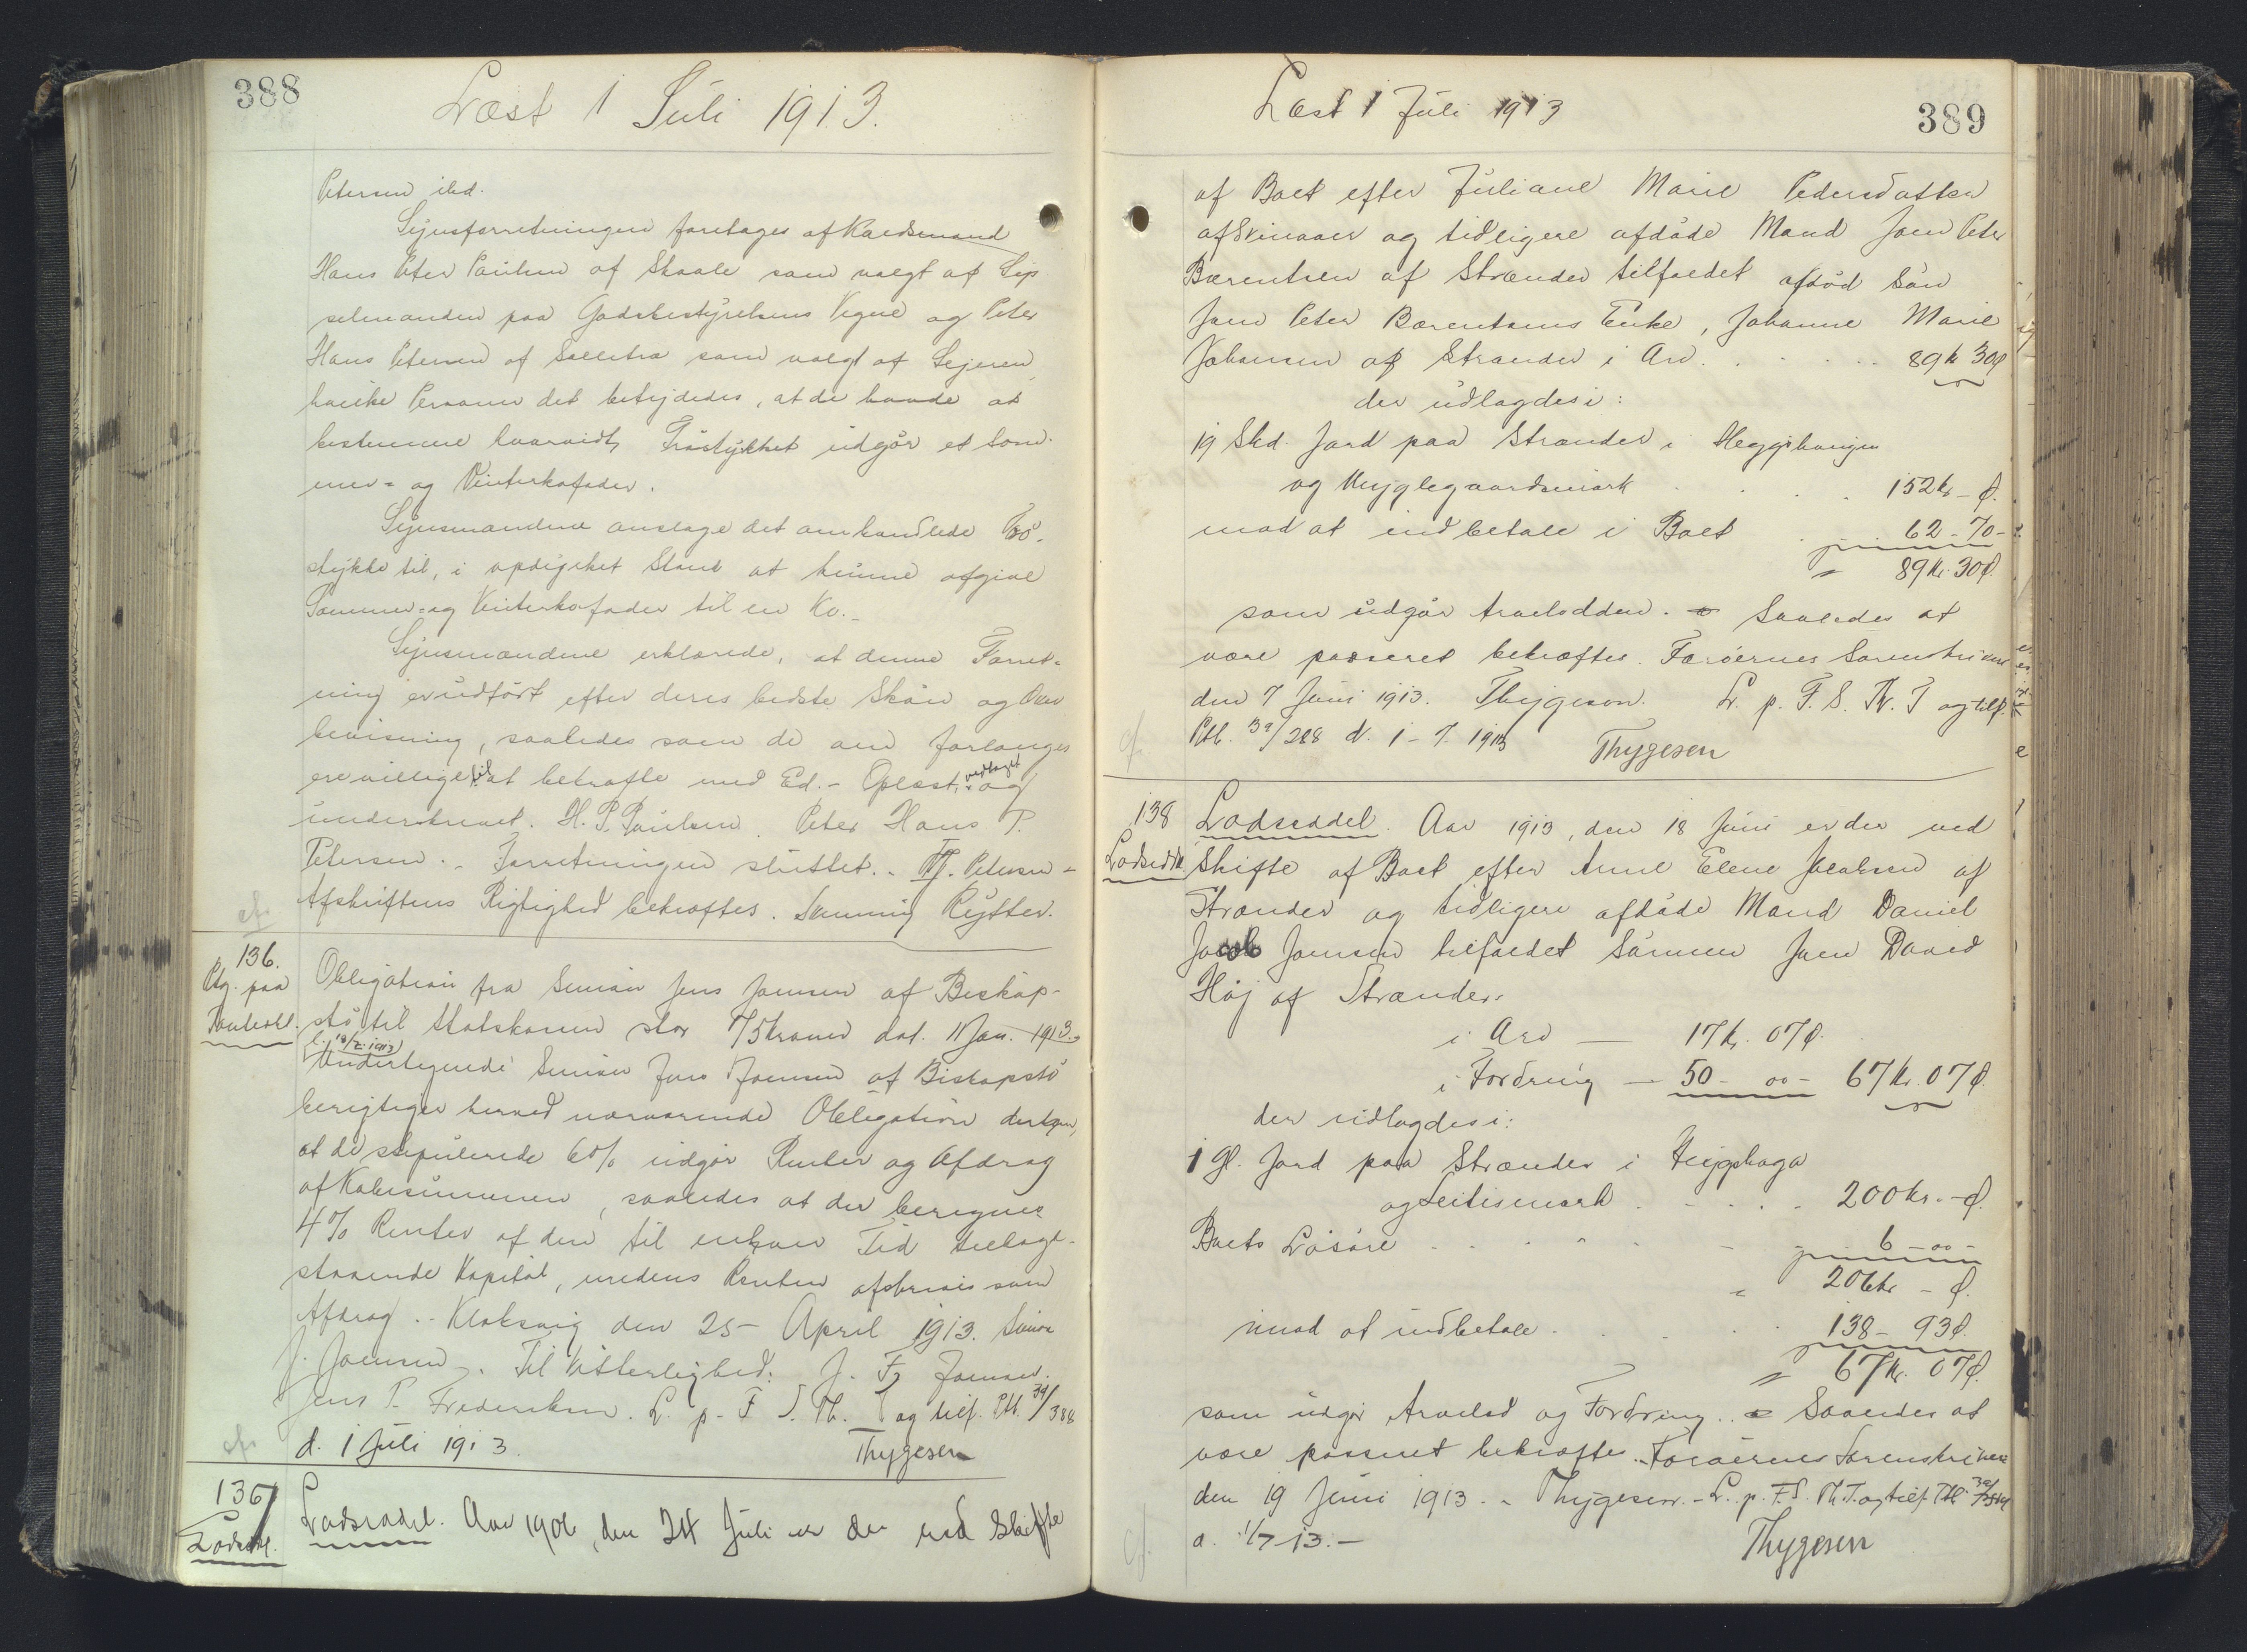 388
Læst 1 Juli 1913.
Petersen ibd.
Synsforretningen foretages af Raadsmand
Hans Peter Poulsen af Skaale som valgt af Sys
selmanden paa Godsbestyrelsens Vegne og Peter
Hans Petersen af som valgt af Lejeren
hvilke Personer det betydedes, at de havde at
bestemme hvorvidt Trøstykket udgør et Som-
mer- og Vinterkofoder.
Synsmændene anslage det omhandlede Trø-
stykke til, i opdyrket Stand at kunne afgive
Sommer- og Vinterkofoder til en Ko.-
Synsmændene erklærede, at denne Forret-
ning er udført efter deres bedste Skøn og Over
bevisning, saaledes som de om forlanges
ere villige til at bekræfte med Ed.- Oplæst, vedtaget og
underskrevet. H. P. Poulsen. Peter Hans P.
Petersen.- Forretningen sluttet.- Petersen -
Afskriftens Rigtighed bekræftes. Rytter.
136.
Ptg. paa
Obligation fra Simon Jens Joensen af Biskop-
stø til Statskassen stor 75 Kroner dat. 11 Jan. 1913.
Undertegnede Simon Jens Joensen af Biskopstø
berigtiger herved nærværende Obligation derhen,
at de stipulerede 6% udgør Renter og Afdrag
af Købesummen, saaledes at der beregnes
4% Renter af den til enhver Tid tilbage-
staaende Kapital, medens Resten afskrives som
Afdrag.- Klaksvig den 25 April 1913. Simon
J. Joensen. Til Vitterlighed: J. F. Joensen.
Jens P. Frederiksen. L. p. F. S. Th. T og tilf. Ptb. 39/388
d. 1 Juli 1913. Thygesen
137
Lodsedl.
Lodseddel. Aar 1906, den 24 Juli er der ved Skifte
389
Læst 1 Juli 1913
af Boet efter Juliane Marie Pedersdatter
af Svinaaer og tidligere afdøde Mand Joen Peter
Bærentsen af Strænder tilfaldet afdød Søn
Joen Peter Bærentsens Enke, Johanne Marie
Johansen af Strænder i Arv . . . . . 89 Kr 30 Ø
der udlagdes i:
19 Skd. Jord paa Strænder i
og . . . . 152 Kr - Ø.
mod at indbetale i Boet . . 62 - 70 -
= 89 Kr. 30 Ø.
som udgør Arvelodden. - Saaledes at
være passeret bekræftes. Færøernes Sorenskriveri
den 7 Juni 1913. Thygesen. L. p. F. S. Th. T og tilf.
Ptb. 39/288 d. 1-7-1913 Thygesen
138
Lodsedd
Lodseddel. Aar 1913, den 18 Juni er der ved
Skifte af Boet efter Anne Elene Jacobsen af
Strænder og tidligere afdøde Mand Daniel
Jacob Joensen tilfaldet Sønnen Joen David
Høj af Strænder:
i Arv — 17 Kr. 07 Ø.
i Fordring — 50 - 00 - 67 Kr. 07 Ø.
der udlagdes i:
1 Gl. Jord paa Strænder i
og . . . . 200 Kr. - Ø.
Boets Løsøre . . . . 6 - 00 -
= 206 Kr - Ø.
mod at indbetale . . . 138 - 93 Ø.
= 67 Kr. 07 Ø.
som udgør Arvelod og Fordring. - Saaledes at
være passeret bekræftes. Færøernes Sorenskriveri
den 19 Juni 1913. - Thygesen. - L. p. F. S. Th. T. og tilf. Ptb.
d. 1/7 13.- Thygesen